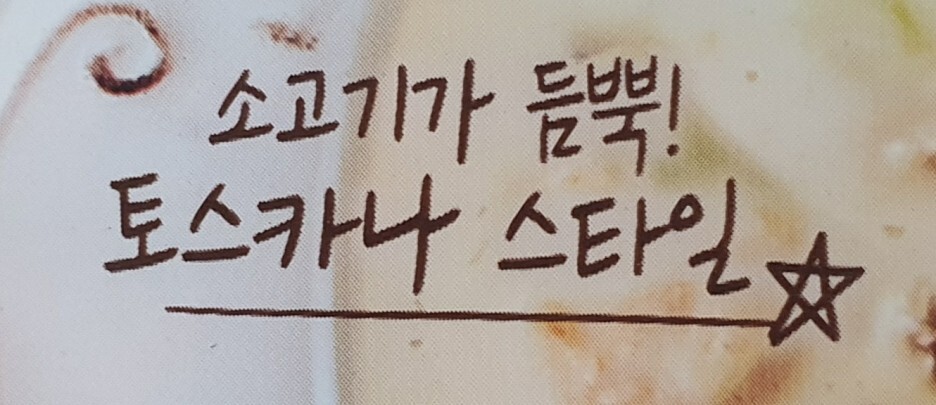 소고기가 듬뿍!
토스카나 스타일